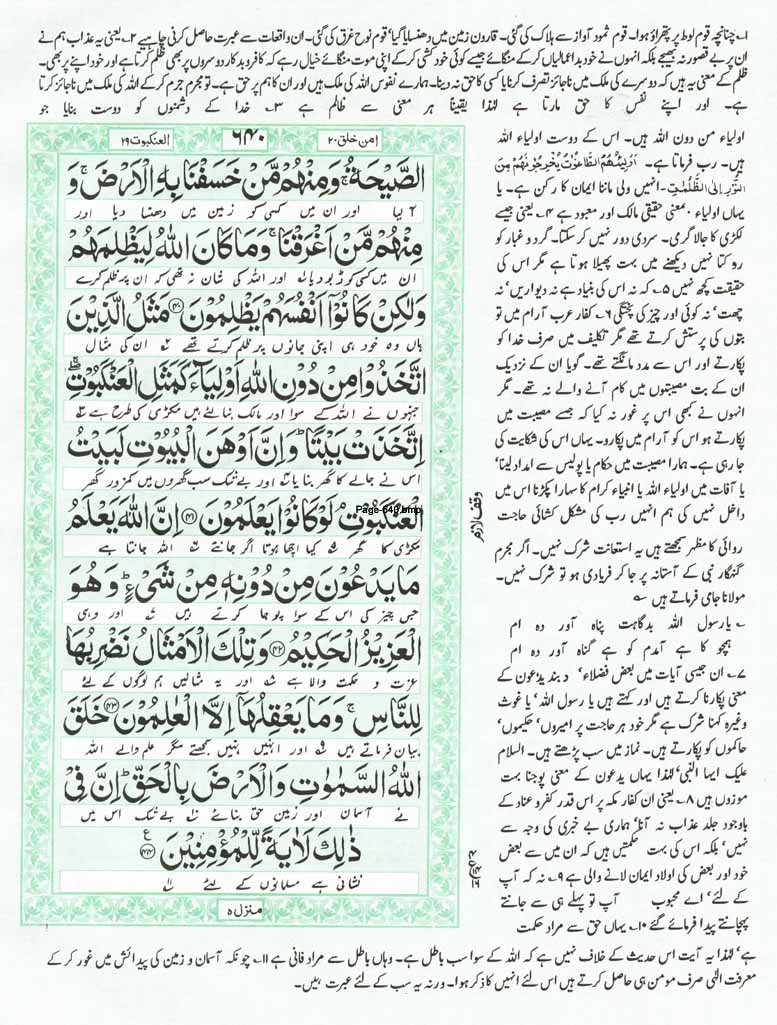 ۱؎ چنانچہ قوم لوط پر پتھراؤ ہوا۔ قوم ثمود آواز سے ہلاک کی گئی۔ قارون زمین میں دھنسایا گیا‘ قوم نوح غرق کی گئی۔ ان واقعات سے عبرت حاصل کرنی چاہیے ۲؎ یعنی یہ عذاب ہم نے
ان پر بے قصور نہ بھیجے بلکہ انہوں نے خود بداعمالیاں کر کے منگائے جیسے کوئی خود کشی کر کے اپنی موت منگائے خیال رہے کہ کافر و بدکار دوسروں پر بھی ظلم کرتا ہے اور خود اپنے پر بھی۔
ظلم کے معنی یہ ہیں کہ دوسرے کی ملک میں ناجائز تصرف کرنا یا کسی کا حق نہ دینا۔ ہمارے نفوس اللہ کی ملک ہیں اور ان کا ہم پر حق ہے۔ تو مجرم جرم کر کے اللہ کی ملک میں ناجائز کرتا
ہے۔ اور اپنے نفس کا حق مارتا ہے لہٰذا یقیناً ہر معنی سے ظالم ہے ۳؎ خدا کے دشمنوں کو دوست بنایا جو
اولیاء من دون اللہ ہیں۔ اس کے دوست اولیاء اللہ
ہیں۔ رب فرماتا ہے۔ اَوْلِیٰٓئُہُمُ الطَّاغُوْتُ یُخْرِجُوْنَہُمْ مِنَ
النُّوْرِ اِلَی الظُّلُمٰتِ۔ انہیں ولی ماننا ایمان کا رکن ہے۔ یا
یہاں اولیاء ۔ معنی حقیقی مالک اور معبود ہے ۴؎ یعنی جیسے
لکڑی کا جالا گرمی۔ سردی دور نہیں کر سکتا۔ گرد و غبار کو
روکتا نہیں دیکھنے میں بہت پھیلا ہوتا ہے مگر اس کی
حقیقت کچھ نہیں ۵؎ کہ نہ اس کی بنیاد ہے نہ دیواریں‘ نہ
چھت‘ نہ کوئی اور چیز کی پختگی ۶؎ کفار عرب آرام میں تو
بتوں کی پرستش کرتے تھے مگر تکلیف میں صرف خدا کو
پکارتے اور اس سے مدد مانگتے تھے۔ گویا ان کے نزدیک
ان کے بت مصیبتوں میں کام آنے والے نہ تھے۔ مگر
انہوں نے کبھی اس پر غور نہ کیا کہ جسے مصیبت میں
پکارتے ہو اس کو آرام میں پکارو۔ یہاں اس کی شکایت کی
جا رہی ہے۔ ہمارا مصیبت میں حکام یا پولیس سے امداد لینا‘
یا آفات میں اولیاء اللہ یا انبیاء کرام کا سہارا پکڑنا اس میں
داخل نہیں کی ہم انہیں رب کی مشکل کشائی حاجت
روائی کا مظہر سمجھتے ہیں یہ استعانت شرک نہیں۔ اگر مجرم
گنہگار نبی کے آستانہ پر جا کر فریادی ہو تو شرک نہیں۔
مولانا جامی فرماتے ہیں ؎
؎ یارسول اللہ بدرگاہت پناہ آور دہ ام
ہیچو کا ہے آمدم کو ہے گناہ آور دہ ام
۷؎ ان جیسی آیات میں بعض فضلاء‘ دیوبند یدعون کے
معنی پکارنا کرتے ہیں اور کہتے ہیں یا رسول اللہ‘ یا غوث
وغیرہ کہنا شرک ہے مگر خود ہر حاجت پر امیروں‘ حکیموں‘
حاکموں کو پکارتے ہیں۔ نماز میں سب پڑھتے ہیں۔ السلام
علیک ایہا النبی‘ لہٰذا یہاں یدعون کے معنی پوجنا بہت
موزوں ہیں ۸؎ یعنی ان کفار مکہ پر اس قدر کفر و عناد کے
باوجود جلد عذاب نہ آنا‘ ہماری بے خبری کی وجہ سے
نہیں‘ بلکہ اس کی بہت حکمتیں ہیں کہ ان میں سے بعض
خود اور بعض کی اولاد ایمان لانے والی ہے ۹؎ نہ کہ آپ
کے لئے‘ اے محبوب آپ تو پہلے ہی سے جانتے
پہچانتے پیدا فرمائے گئے ۱۰؎ یہاں حق سے مراد حکمت
وقف لازم
امن خلق ۲۰
۶۴۰
العنکبوت ۲۹
الصَّيْحَةُ ۚ وَمِنْهُم مَّنْ خَسَفْنَا بِهِ الْاَرْضَ ۚ وَ
آ لیا اور ان میں کسی کو زمین میں دھنسا دیا اور
مِنْهُمْ مَّنْ اَغْرَقْنَا ۚ وَمَا كَانَ اللّٰهُ لِيَظْلِمَهُمْ
ان میں کسی کو ڈبو دیا اور اللہ کی شان نہ تھی کہ ان پر ظلم کرے
وَلٰكِنْ كَانُوْٓا اَنْفُسَهُمْ يَظْلِمُوْنَ ﴿۴۰﴾ مَثَلُ الَّذِيْنَ
ہاں وہ خود ہی اپنی جانوں پر ظلم کرتے تھے ان کی مثال
اتَّخَذُوْا مِنْ دُوْنِ اللّٰهِ اَوْلِيَآءَ كَمَثَلِ الْعَنْكَبُوْتِ ۖ
جنہوں نے اللہ کے سوا اور مالک بنا لئے ہیں مکڑی کی طرح ہے
اِتَّخَذَتْ بَيْتًا ؕ وَاِنَّ اَوْهَنَ الْبُيُوْتِ لَبَيْتُ
اس نے جالے کا گھر بنایا اور بے شک سب گھروں میں کمزور گھر
الْعَنْكَبُوْتِ ۘ لَوْ كَانُوْا يَعْلَمُوْنَ ﴿۴۱﴾ اِنَّ اللّٰهَ يَعْلَمُ
Page-640.bmp
مکڑی کا گھر کیا اچھا ہوتا اگر جانتے اللہ جانتا ہے
مَا يَدْعُوْنَ مِنْ دُوْنِهٖ مِنْ شَيْءٍ ؕ وَهُوَ
جس چیز کی اس کے سوا پوجا کرتے ہیں اور وہی
الْعَزِيْزُ الْحَكِيْمُ ﴿۴۲﴾ وَتِلْكَ الْاَمْثَالُ نَضْرِبُهَا
عزت و حکمت والا ہے اور یہ مثالیں ہم لوگوں کے لئے
لِلنَّاسِ ۚ وَمَا يَعْقِلُهَآ اِلَّا الْعٰلِمُوْنَ ﴿۴۳﴾ خَلَقَ
بیان فرماتے ہیں اور انہیں نہیں سمجھتے مگر علم والے اللہ
اللّٰهُ السَّمٰوٰتِ وَالْاَرْضَ بِالْحَقِّ ؕ اِنَّ فِيْ
نے آسمان اور زمین حق بنائے بے شک اس میں
ذٰلِكَ لَاٰيَةً لِّلْمُؤْمِنِيْنَ ﴿۴۴﴾
نشانی ہے مسلمانوں کے لئے
منزل ۵
ہے‘ لہٰذا یہ آیت اس حدیث کے خلاف نہیں ہے کہ اللہ کے سوا سب باطل ہے۔ وہاں باطل سے مراد فانی ہے ۱۱؎ چونکہ آسمان و زمین کی پیدائش میں غور کر کے
معرفت الٰہی صرف مومن ہی حاصل کرتے ہیں اس لئے انہیں کا ذکر ہوا۔ ورنہ یہ سب کے لئے عبرت ہیں۔